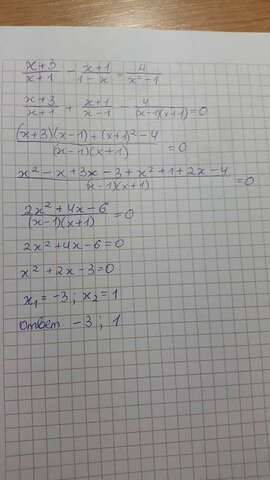 x+3/x+1 - x+1/1-x = 4/x²-1
x+3/x+1 + x+1/x-1 - 4/(x-1)(x+1) = 0
(x+3)(x-1)+(x+1)²-4/(x-1)(x+1) = 0
x²-x+3x-3+x²+1+2x-4/(x-1)(x+1) = 0
2x²+4x-6/(x-1)(x+1) = 0
2x²+4x-6=0
x²+2x-3=0
x₁=-3; x₂=1
ответ -3; 1